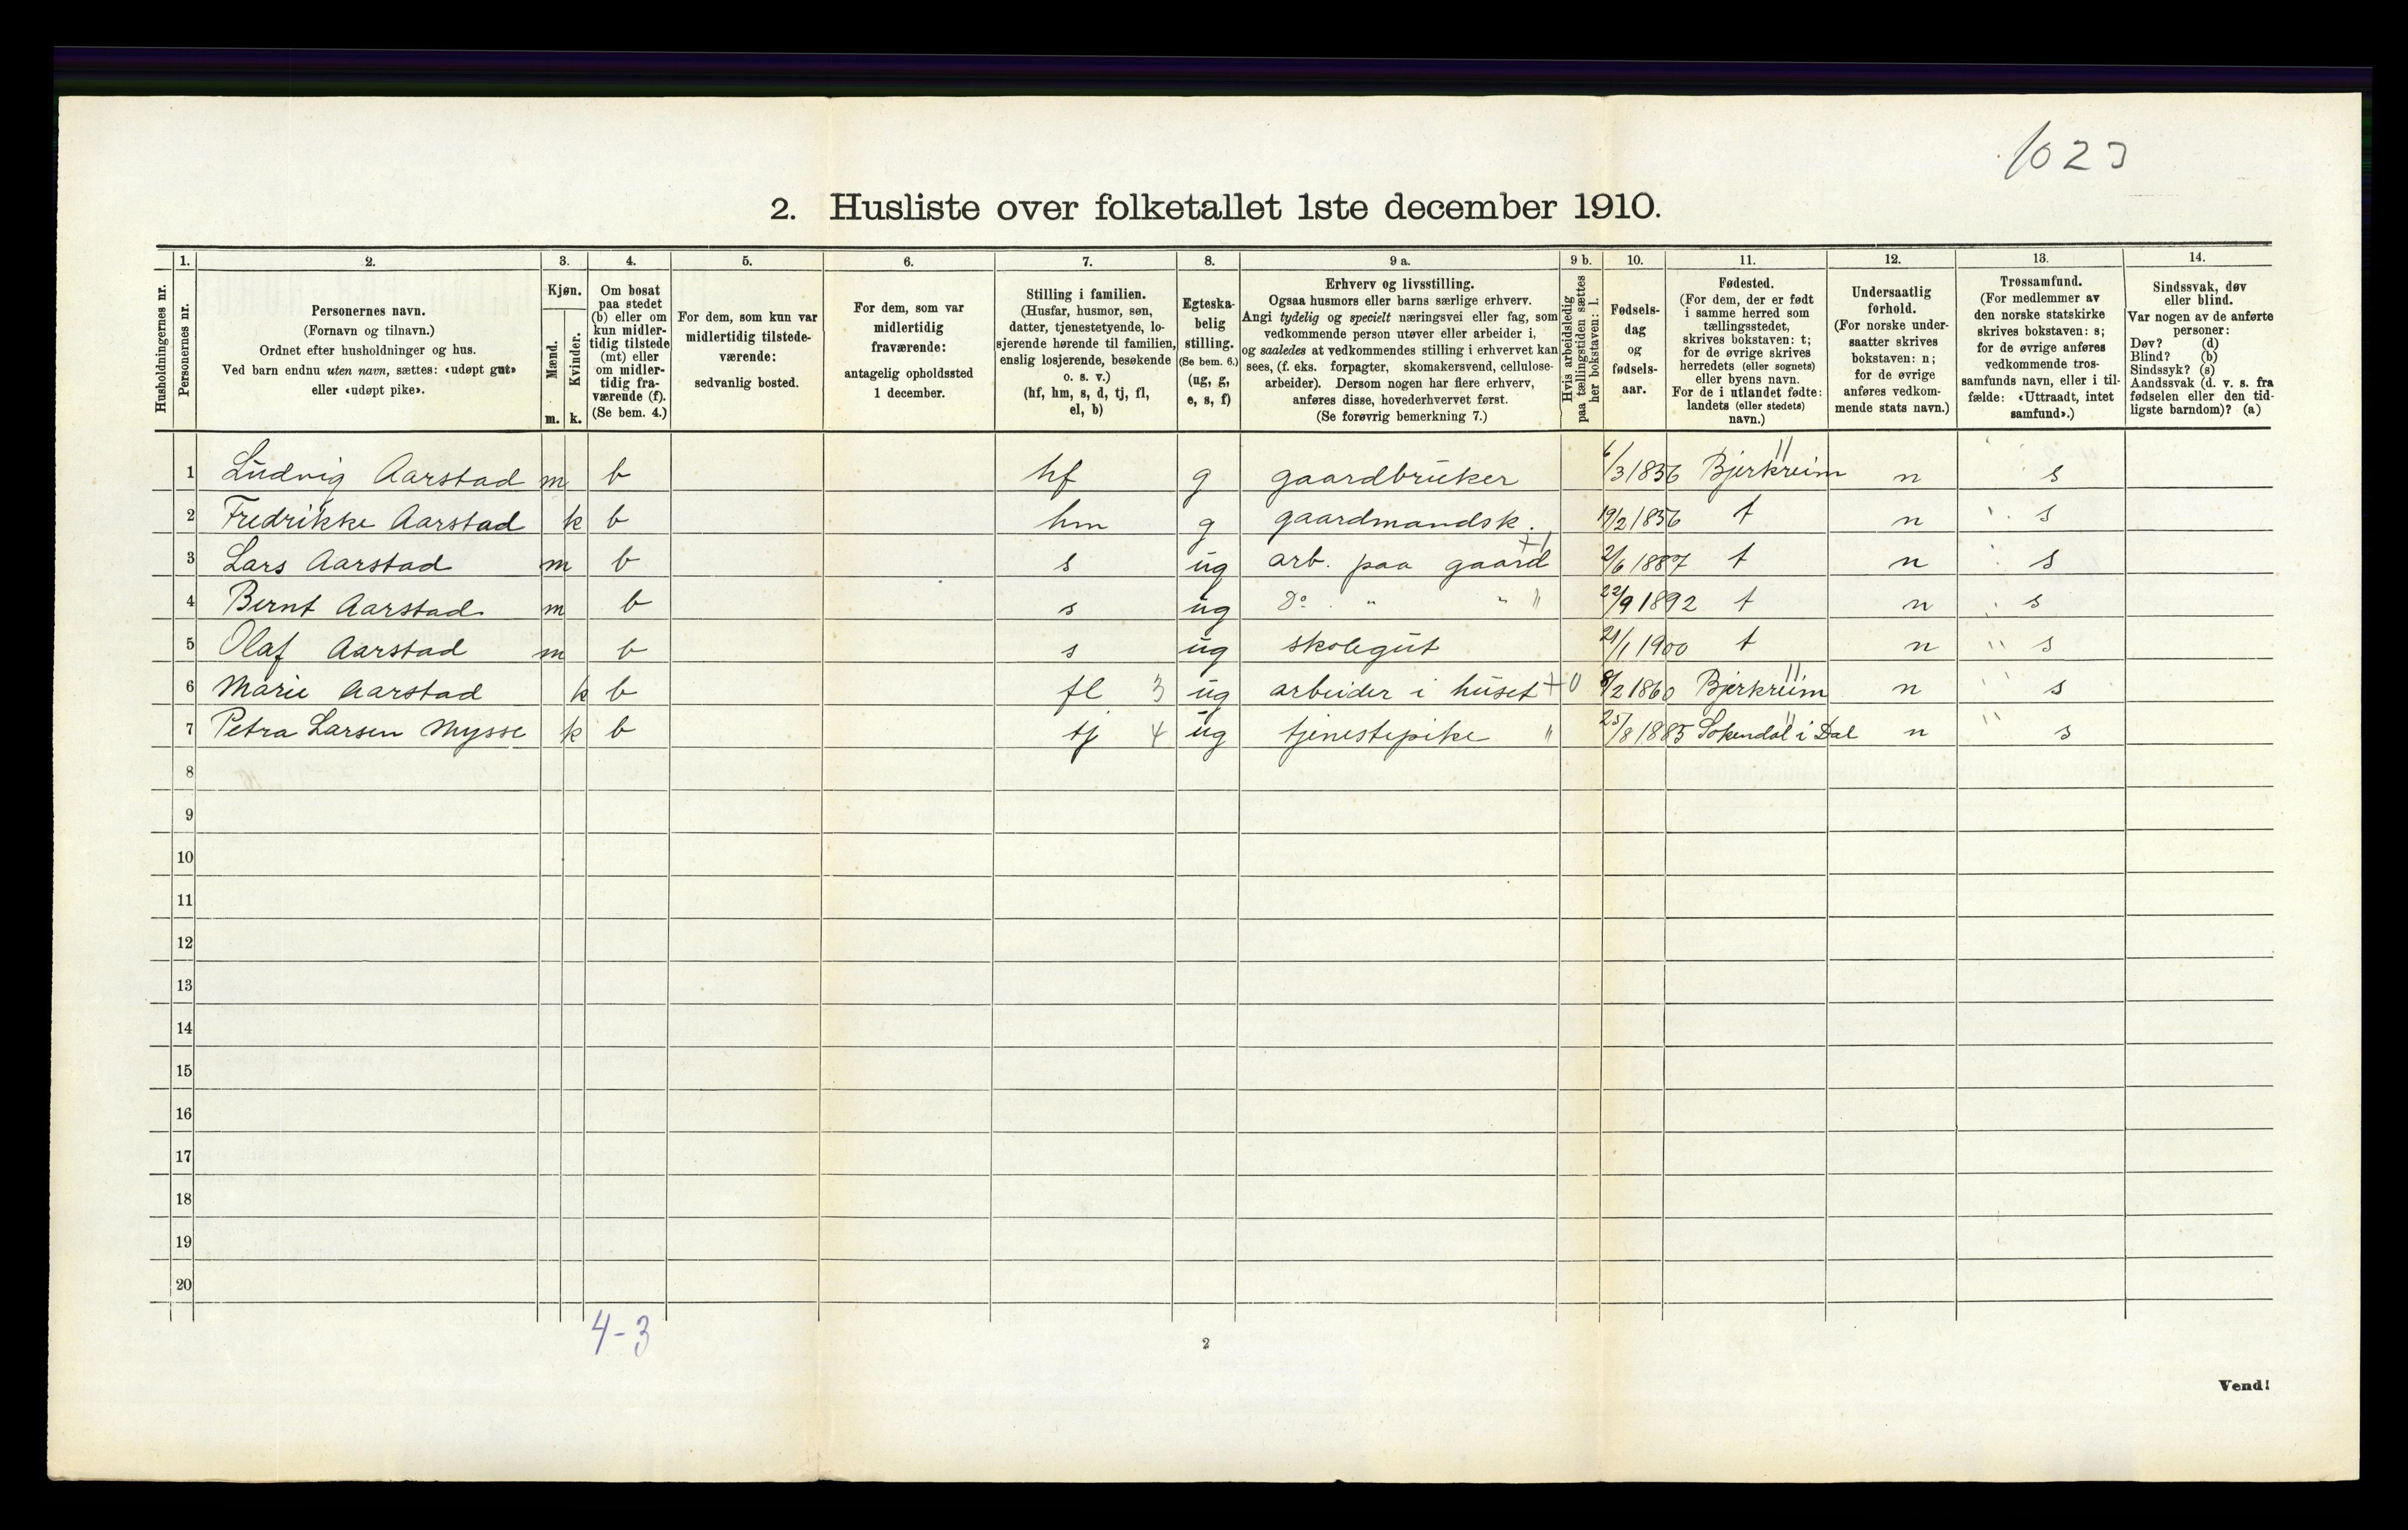 1023
2. Husliste over folketallet 1ste december 1910.
Husholdningernes nr.
1.
Personernes nr.
2.
Personernes navn.
(Fornavn og tilnavn.)
Ordnet efter husholdninger og hus.
Ved barn endnu uten navn, sættes: «udøpt gut»
eller «udøpt pike».
3.
Kjøn.
Mænd.
m.
Kvinder.
k.
4.
Om bosat
paa stedet
(b) eller om
kun midler-
tidig tilstede
(mt) eller
om midler-
tidig fra-
værende (f).
(Se bem. 4.)
5.
For dem, som kun var
midlertidig tilstede-
værende:
sedvanlig bosted.
6.
For dem, som var
midlertidig
fraværende:
antagelig opholdssted
1 december.
7.
Stilling i familien.
(Husfar, husmor, søn,
datter, tjenestetyende, lo-
sjerende hørende til familien,
enslig losjerende, besøkende
o. s. v.)
(hf, hm, s, d, tj, fl,
el, b)
8.
Egteska-
belig
stilling.
(Se bem. 6.)
(ug, g,
e, s, f)
9 a.
Erhverv og livsstilling.
Ogsaa husmors eller barns særlige erhverv.
Angi tydelig og specielt næringsvei eller fag, som
vedkommende person utøver eller arbeider i,
og saaledes at vedkommendes stilling i erhvervet kan
sees, (f. eks. forpagter, skomakersvend, cellulose-
arbeider). Dersom nogen har flere erhverv,
anføres disse, hovederhvervet først.
(Se forøvrig bemerkning 7.)
9 b.
Hvis arbeidsledig
paa tællingstiden sættes
her bokstaven: l.
10.
Fødsels-
dag
og
fødsels-
aar.
11.
Fødested.
(For dem, der er født
i samme herred som
tællingsstedet,
skrives bokstaven: t;
for de øvrige skrives
herredets (eller sognets)
eller byens navn.
For de i utlandet fødte:
landets (eller stedets)
navn.)
12.
Undersaatlig
forhold.
(For norske under-
saatter skrives
bokstaven: n;
for de øvrige
anføres vedkom-
mende stats navn.)
13.
Trossamfund.
(For medlemmer av
den norske statskirke
skrives bokstaven: s;
for de øvrige anføres
vedkommende tros-
samfunds navn, eller i til-
fælde: «Uttraadt, intet
samfund».)
14.
Sindssvak, døv
eller blind.
Var nogen av de anførte
personer:
Døv? (d)
Blind? (b)
Sindssyk? (s)
Aandssvak (d. v. s. fra
fødselen eller den tid-
ligste barndom)? (a)
1 Ludvig Aarstad m b hf g gaardbruker 6/3 1856 Bjerkreim n s
2 Fredrikke Aarstad k b hm g gaardmandsk. 19/2 1856 t n s
3 Lars Aarstad m b s ug arb. paa gaard 2/6 1887 t n s
4 Bernt Aarstad m b s ug Do " " 22/9 1892 t n s
5 Olaf Aarstad m b s ug skolegut 21/1 1900 t n s
6 Marie Aarstad k b fl 3 ug arbeider i huset +0 8/2 1860 Bjerkreim n s
7 Petra Larsen Mysse k b tj 4 ug tjenestepike " 25/8 1885 Sokendal i Dal n s
8
9
10
11
12
13
14
15
16
17
18
19
20
4-3
2
Vend!